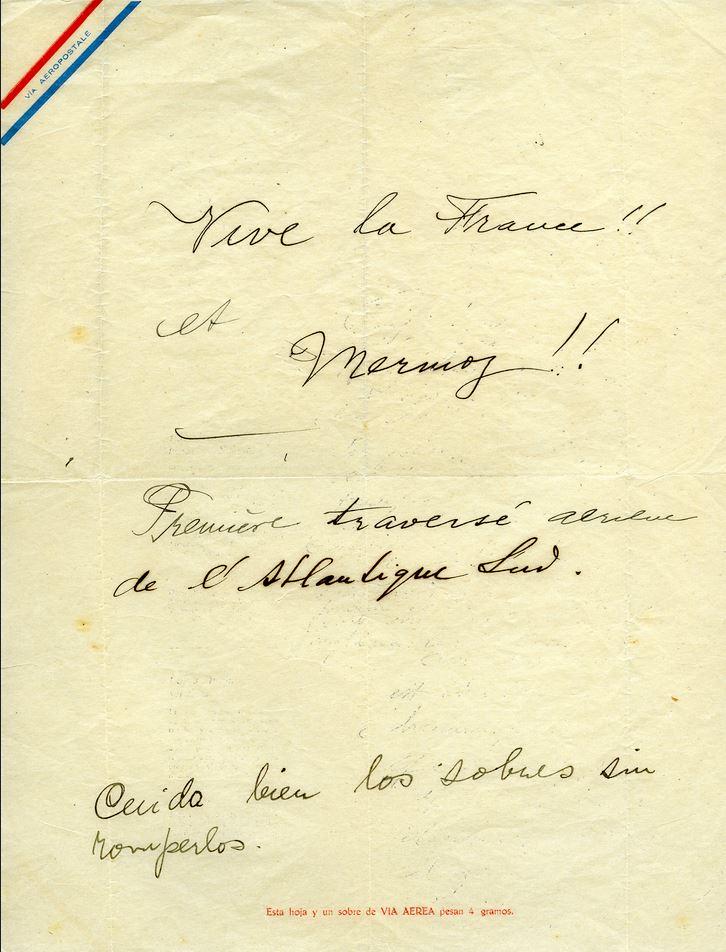 VIA AEROPOSTALE
Vive la France !!
et
Mermoz !!
Première traversé aerienne
de l'Atlantique Sud.
est
Cuida bien los sobres sin
romperlos.
Esta hoja y un sobre de VIA AEREA pesan 4 gramos.